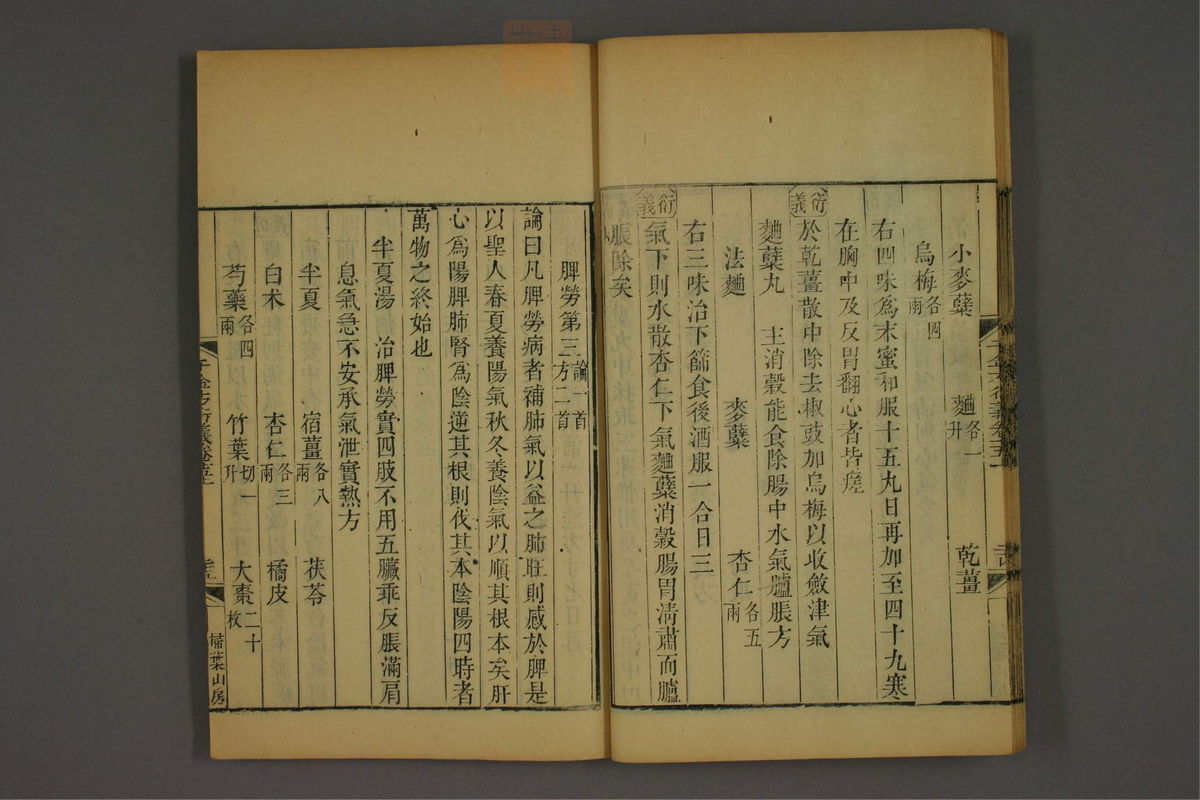 小麥蘖　麯各一升　乾薑
烏梅各四兩
右四味爲末蜜和服十五丸日再加至四十九寒
在胸中及反胃翻心者皆瘥
衍義於乾薑散中除去椒豉加烏梅以收斂津氣
麯蘖丸　主消穀能食除腸中水氣臚脹方
法麯　麥蘖　杏仁各五兩
右三味治下篩食後酒服一合日三
衍義氣下則水散杏仁下氣麯蘖消穀腸胃淸肅而臚
脹除矣
脾勞第三論一首方二首
論曰凡脾勞病者補肺氣以益之肺旺則感於脾是
以聖人春夏養陽氣秋冬養陰氣以順其根本矣肝
心爲陽脾肺腎爲陰逆其根則伐其本陰陽四時者
萬物之終始也
半夏湯　治脾勞實四肢不用五臟乖反脹滿肩
息氣急不安承氣泄實熱方
半夏　宿薑各八兩　茯苓
白术　杏仁各三兩　橘皮
芍藥各四兩　竹葉切一升　大棗二十枚
掃葉山房